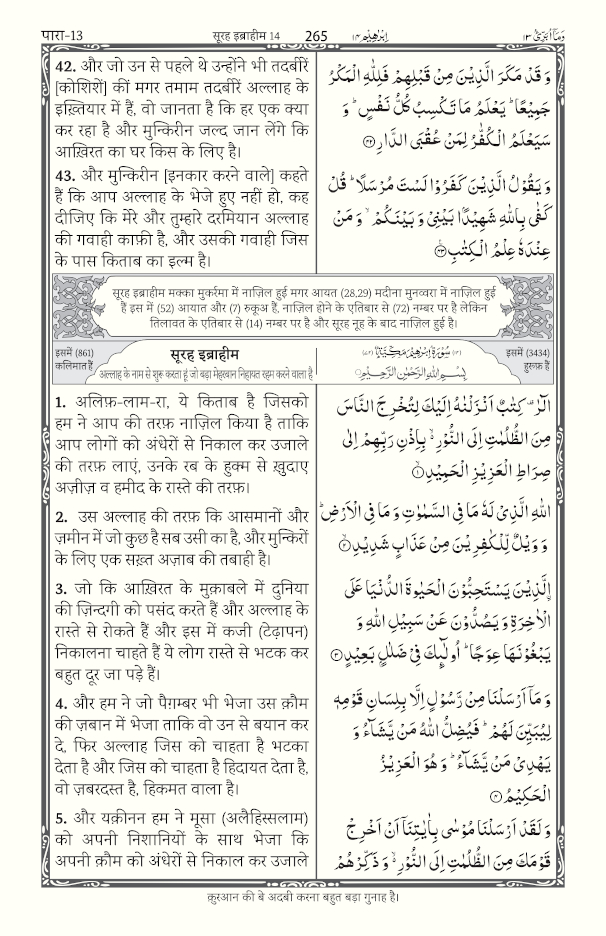 पारा-13 सूरह इब्राहीम 14 265 اِبْرٰهِيْم ١٤ وَمَآ اُبَرِّئُ ١٣
42. और जो उन से पहले थे उन्होंने भी तदबीरें
[कोशिशें] कीं मगर तमाम तदबीरें अल्लाह के
इख़्तियार में हैं, वो जानता है कि हर एक क्या
कर रहा है और मुन्किरीन जल्द जान लेंगे कि
आख़िरत का घर किस के लिए है।
43. और मुन्किरीन [इनकार करने वाले] कहते
हैं कि आप अल्लाह के भेजे हुए नहीं हो, कह
दीजिए कि मेरे और तुम्हारे दरमियान अल्लाह
की गवाही काफ़ी है, और उसकी गवाही जिस
के पास किताब का इल्म है।
وَ قَدْ مَكَرَ الَّذِيْنَ مِنْ قَبْلِهِمْ فَلِلّٰهِ الْمَكْرُ
جَمِيْعًا ؕ يَعْلَمُ مَا تَكْسِبُ كُلُّ نَفْسٍ ؕ وَ
سَيَعْلَمُ الْكُفّٰرُ لِمَنْ عُقْبَى الدَّارِ ۝۴۲
وَ يَقُوْلُ الَّذِيْنَ كَفَرُوْا لَسْتَ مُرْسَلًا ؕ قُلْ
كَفٰى بِاللّٰهِ شَهِيْدًۢا بَيْنِيْ وَ بَيْنَكُمْ ۙ وَ مَنْ
عِنْدَهٗ عِلْمُ الْكِتٰبِ ۝۴۳
सूरह इब्राहीम मक्का मुकर्रमा में नाज़िल हुई मगर आयत (28,29) मदीना मुनव्वरा में नाज़िल हुई
हैं इस में (52) आयात और (7) रुकूअ है, नाज़िल होने के एतिबार से (72) नम्बर पर है लेकिन
तिलावत के एतिबार से (14) नम्बर पर है और सूरह नूह के बाद नाज़िल हुई है।
इसमें (861)
कलिमात हैं
सूरह इब्राहीम
अल्लाह के नाम से शुरू करता हूं जो बड़ा मेहरबान निहायत रहम करने वाला है
(١٤) سُوْرَةُ اِبْرٰهِيْمَ مَكِّيَّةٌ (٧٢)
بِسْمِ اللّٰهِ الرَّحْمٰنِ الرَّحِيْمِ
इसमें (3434)
हुरूफ़ हैं
1. अलिफ़-लाम-रा, ये किताब है जिसको
हम ने आप की तरफ़ नाज़िल किया है ताकि
आप लोगों को अंधेरों से निकाल कर उजाले
की तरफ़ लाएं, उनके रब के हुक्म से ख़ुदाए
अज़ीज़ व हमीद के रास्ते की तरफ़।
2. उस अल्लाह की तरफ़ कि आसमानों और
ज़मीन में जो कुछ है सब उसी का है, और मुन्किरों
के लिए एक सख़्त अज़ाब की तबाही है।
3. जो कि आख़िरत के मुक़ाबले में दुनिया
की ज़िन्दगी को पसंद करते हैं और अल्लाह के
रास्ते से रोकते हैं और इस में कजी (टेढ़ापन)
निकालना चाहते हैं ये लोग रास्ते से भटक कर
बहुत दूर जा पड़े हैं।
4. और हम ने जो पैग़म्बर भी भेजा उस क़ौम
की ज़बान में भेजा ताकि वो उन से बयान कर
दे, फिर अल्लाह जिस को चाहता है भटका
देता है और जिस को चाहता है हिदायत देता है,
वो ज़बरदस्त है, हिकमत वाला है।
5. और यक़ीनन हम ने मूसा (अलैहिस्सलाम)
को अपनी निशानियों के साथ भेजा कि
अपनी क़ौम को अंधेरों से निकाल कर उजाले
الٓرٰ ۫ كِتٰبٌ اَنْزَلْنٰهُ اِلَيْكَ لِتُخْرِجَ النَّاسَ
مِنَ الظُّلُمٰتِ اِلَى النُّوْرِ ۙ۬ بِاِذْنِ رَبِّهِمْ اِلٰى
صِرَاطِ الْعَزِيْزِ الْحَمِيْدِ ۝۱
اللّٰهِ الَّذِيْ لَهٗ مَا فِي السَّمٰوٰتِ وَ مَا فِي الْاَرْضِ ؕ
وَ وَيْلٌ لِّلْكٰفِرِيْنَ مِنْ عَذَابٍ شَدِيْدِ ۝۲
اِلَّذِيْنَ يَسْتَحِبُّوْنَ الْحَيٰوةَ الدُّنْيَا عَلَى
الْاٰخِرَةِ وَ يَصُدُّوْنَ عَنْ سَبِيْلِ اللّٰهِ وَ
يَبْغُوْنَهَا عِوَجًا ؕ اُولٰٓئِكَ فِيْ ضَلٰلٍۭ بَعِيْدٍ ۝۳
وَ مَاۤ اَرْسَلْنَا مِنْ رَّسُوْلٍ اِلَّا بِلِسَانِ قَوْمِهٖ
لِيُبَيِّنَ لَهُمْ ؕ فَيُضِلُّ اللّٰهُ مَنْ يَّشَآءُ وَ
يَهْدِيْ مَنْ يَّشَآءُ ؕ وَ هُوَ الْعَزِيْزُ
الْحَكِيْمُ ۝۴
وَ لَقَدْ اَرْسَلْنَا مُوْسٰى بِاٰيٰتِنَاۤ اَنْ اَخْرِجْ
قَوْمَكَ مِنَ الظُّلُمٰتِ اِلَى النُّوْرِ ۙ۬ وَ ذَكِّرْهُمْ
क़ुरआन की बे अदबी करना बहुत बड़ा गुनाह है।